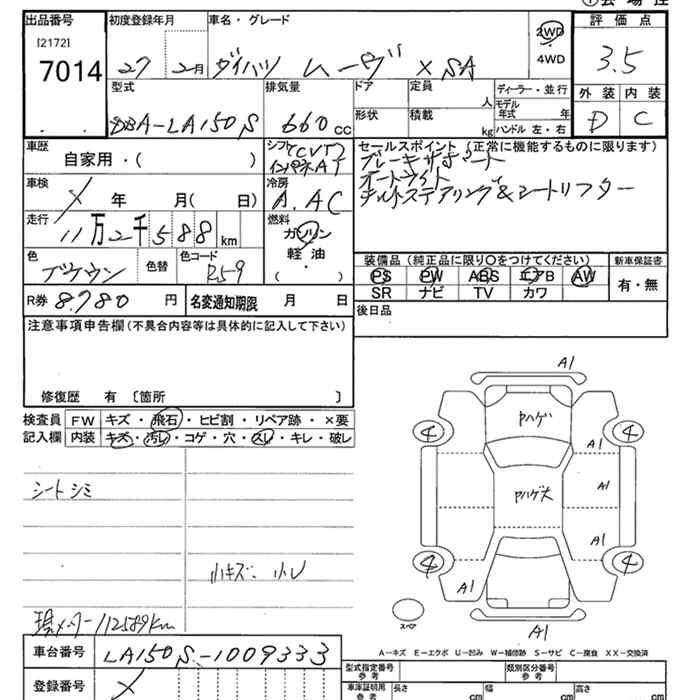 出品番号
初度登録年月
車名・グレード
評価点
[2172]
7014
27 2月
ダイハツ ムーヴ X SA
2WD
・
4WD
3.5
外装 内装
D C
型式
排気量
ドア
定員
人
ディーラー・並行
DBA-LA150S
660 cc
形状
積載
kg
モデル年式 年
ハンドル 左・右
車歴
自家用・( )
シフト
CVT
インパネAT
セールスポイント (正常に機能するものに限ります)
ブレーキサポート
オートライト
チルトステアリング&シートリフター
車検
X 年 月( 日)
冷房
A.AC
走行
11万2千588km
燃料
ガソリン
軽油
・
( )
色
ブラウン
色替
色コード
R59
装備品 (純正品に限り○をつけてください)
新車保証書
PS PW ABS エアB AW
SR ナビ TV カワ
有・無
R券 8780 円
名変通知期限 月 日
後日品
注意事項申告欄(不具合内容等は具体的に記入して下さい)
修復歴 有 〔箇所 〕
検査員
記入欄
FW キズ・飛石・ヒビ割・リペア跡・×要
内装 キズ・汚レ・コゲ・穴・スレ・キレ・破レ
シートシミ
小キズ 小U
現メーター112589km
車台番号 LA150S-1009333
登録番号 X
A1
Pハゲ
4 4
A1
A1
Pハゲ大
A1
4 4
A1
スペア
A1
A-キズ E-エクボ U-凹み W-補修跡 S-サビ C-腐食 XX-交換済
型式指定番号
参考
類別区分番号
参考
車庫証明用
参考
長さ cm
幅 cm
高さ cm